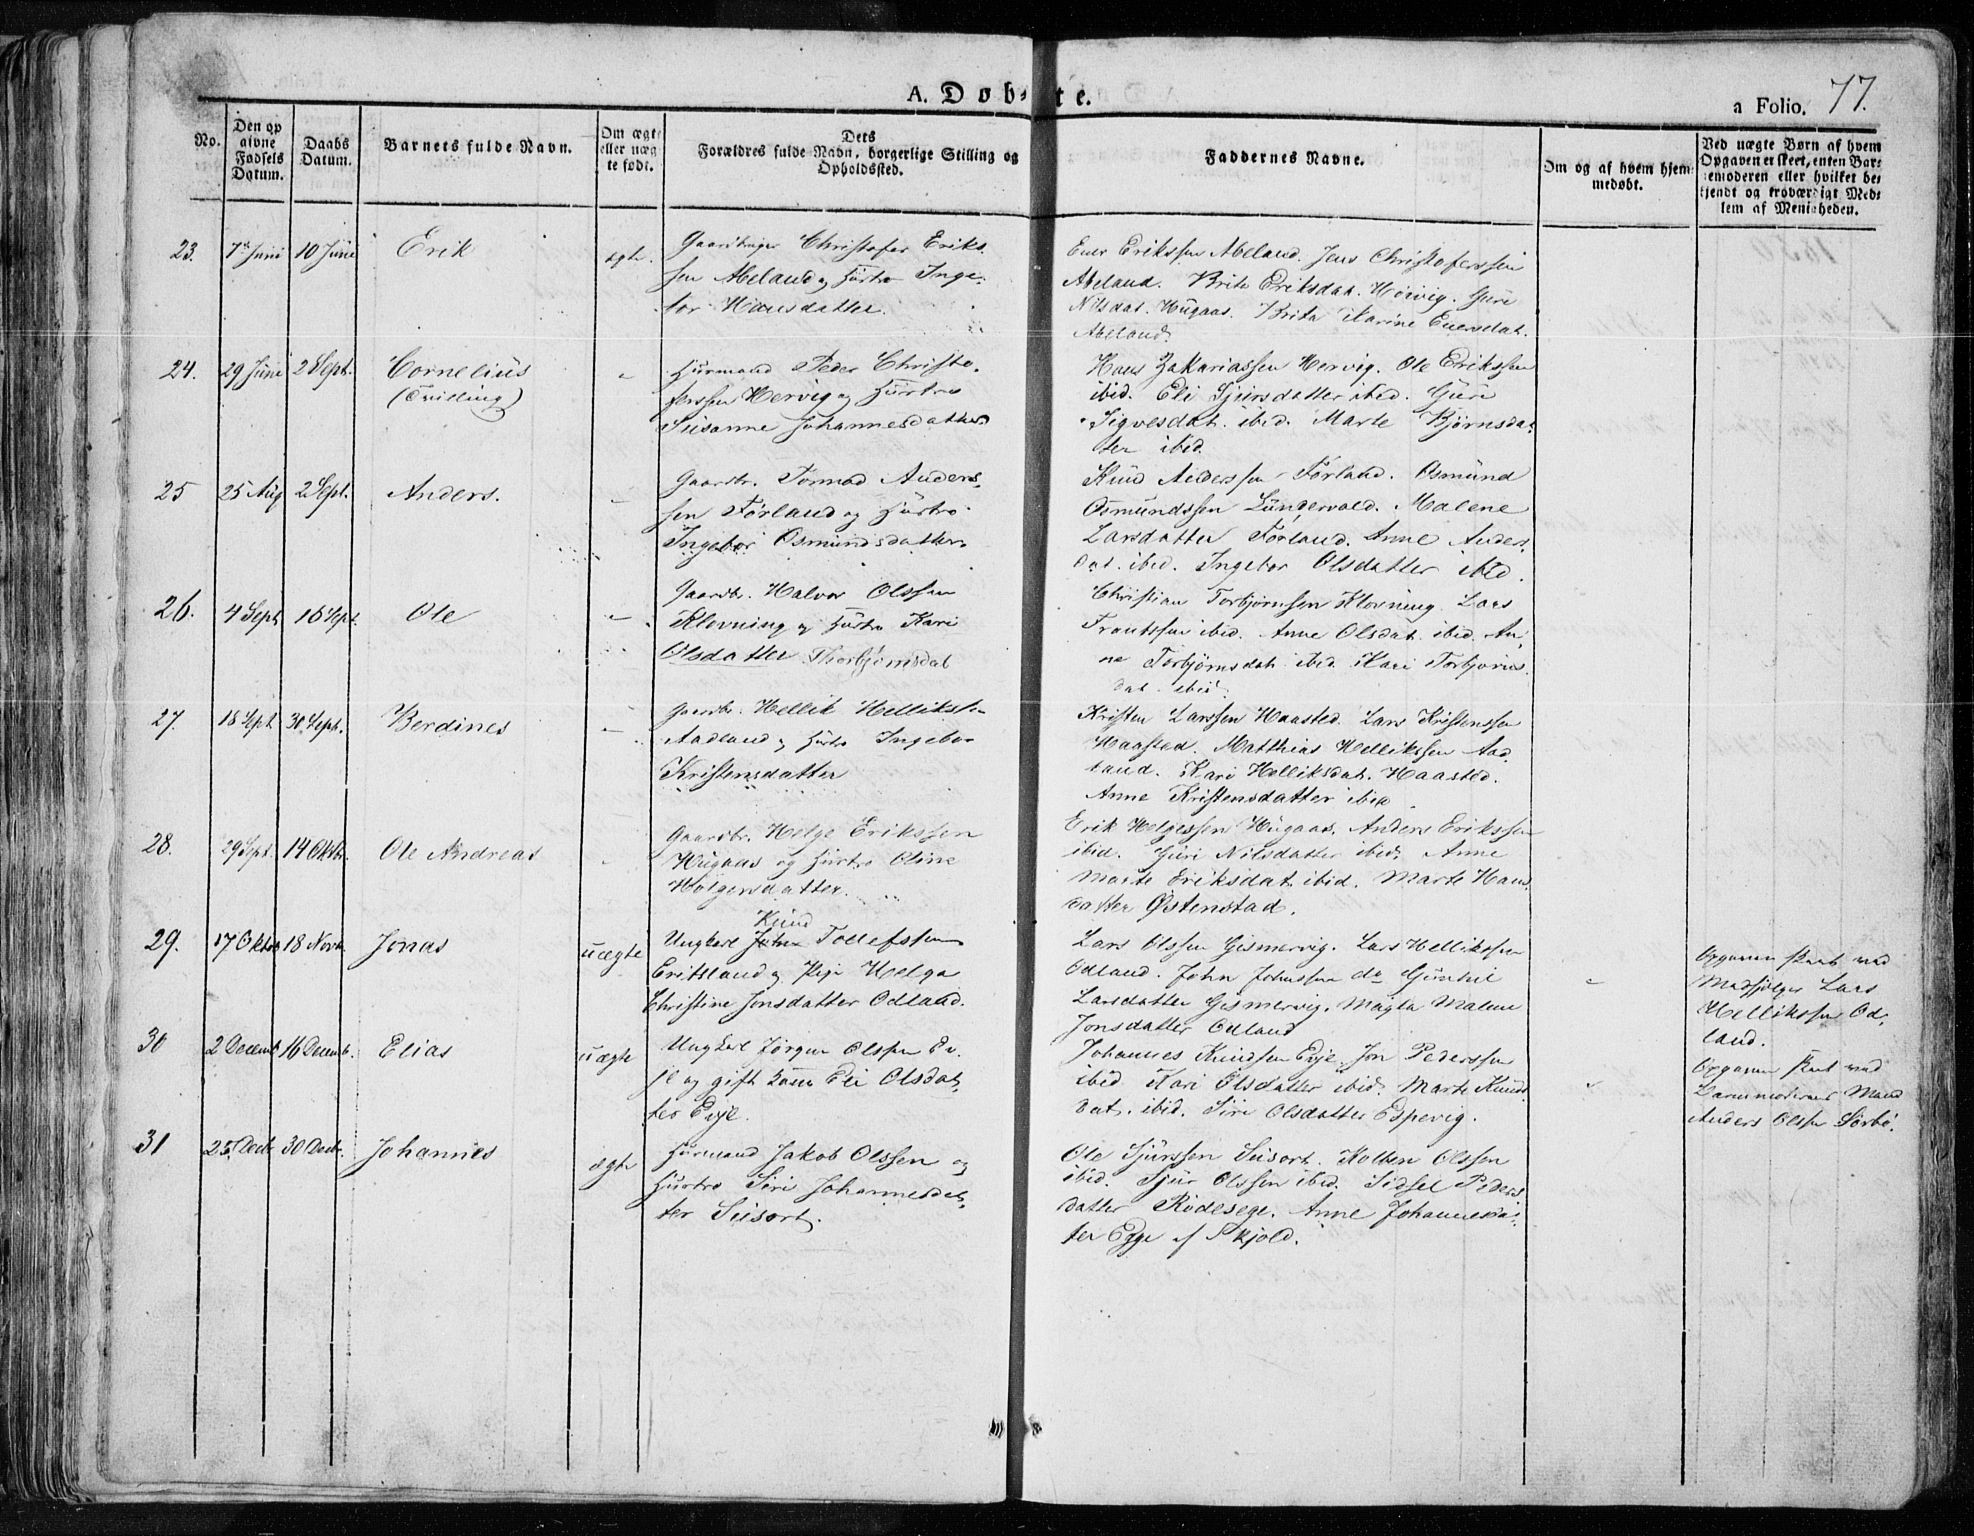 A. Døbte.
a Folio. 77.
No.
Den op
givne
Fødsels
Datum.
Daabs
Datum.
Barnets fulde Navn.
Om ægte
eller uæg
te født.
Dets
Forældres fulde Navn, borgerlige Stilling og
Opholdssted.
Faddernes Navne.
Om og af hvem hjem
medøbt.
Ved uægte Børn af hvem
Opgaven er skeet, enten Bar-
nemoderen eller hvilket be-
kjendt og troværdigt Med-
lem af Menigheden.
23. 7de Juni 10 Juni Erik ægte.
Gaardbruger Christofer Eriks
sen Abeland og Hustro Inge-
bor Hansdatter.
Ener Erikssen Abeland. Jens Christoferssen
Abeland. Brite Eriksdat. Hervig. Guri
Nilsdat. Hugaas. Brita Karine Enersdat.
Abeland.
24. 29 Juni 2 Sept. Cornelius
(Tvilling)
Huusmand Peder Christo-
ferssen Hervig og Hustro
Susanne Johannesdatter
Hans Zakariassen Hervig. Ole Erikssen
ibid. Eli Sjursdatter ibid. Guri
Sigvesdat. ibid. Marte Bjørnsdat-
ter ibid.
25 25 Aug 2 Sept. Anders.
Gaardbr. Tormod Anders-
sen Førland og Hustro
Ingebor Osmundsdatter
Knud Anderssen Førland. Osmund
Osmundssen Lundervold. Malene
Larsdatter Førland. Anne Anders-
dat. ibid. Ingebor Olsdatter ibid.
26. 4 Sept. 16 Sept. Ole
Gaardbr. Halvor Olssen
Klovning og Hustro Kari
Olsdatter Thorbjørnsdat
Christian Torbjørnsen Klovning. Lars
Frantssen ibid. Anne Olsdat. ibid. An-
ne Torbjørnsdat. ibid. Kari Torbjørns
dat. ibid.
27. 18 Sept 30 Sept. Berdines
Gaardbr. Hellik Helliksen
Aadland og Hustro Ingebor
Kristensdatter
Kristen Larssen Haasted. Lars Kristenssen
Haasted. Matthias Hellikssen Aad
land. Kari Helliksdat. Haasted.
Anne Kristensdatter ibid
28. 29 Sept. 14 Oktbr. Ole Andreas
Gaardbr. Helge Erikssen
Hugaas og Hustro Oline
Holgersdatter.
Erik Helgessen Hugaas. Anders Erikssen
ibid. Guri Nilsdatter ibid. Anne
Marte Eriksdat. ibid. Marte Hans
datter Østenstad.
29. 17 Oktbr 18 Novbr Jonas uægte
Knud
Ungkarl John Tollefssen
Eritsland og Pige Helga
Christine Jonsdatter Odland.
Lars Olssen Gismervig. Lars Hellikssen
Odland. John Johnssen do Gunhil
Larsdatter Gismervig. Magla Malene
Jonsdatter Odland
Opgaven skeet ved
Medfølger Lars
Hellikssen Od-
land.
30 2 Decemb 16 Decemb. Elias uægte
Ungkarl Jørgen Olssen Ev-
je og gift Kone Eli Olsdat-
ter Evje.
Johannes Knudsen Evje. Jon Pederssen
ibid Kari Olsdatter ibid. Marte Knuds
dat. ibid. Siri Olsdatter Espevig.
Opgaven skeet ved
Barnemoderens Mand
Anders Olsen Sørbø.
31 25 Decbr 30 Decbr. Johannes ægte
Huusmand Jakob Olssen og
Hustro Siri Johannesdat-
ter Susort.
Ole Sjurssen Susort. Kolben Olssen
ibid. Sjur Olssen ibid. Sidsel Peders
datter Rødesege. Anne Johannesdat-
ter Egge af Skjold.